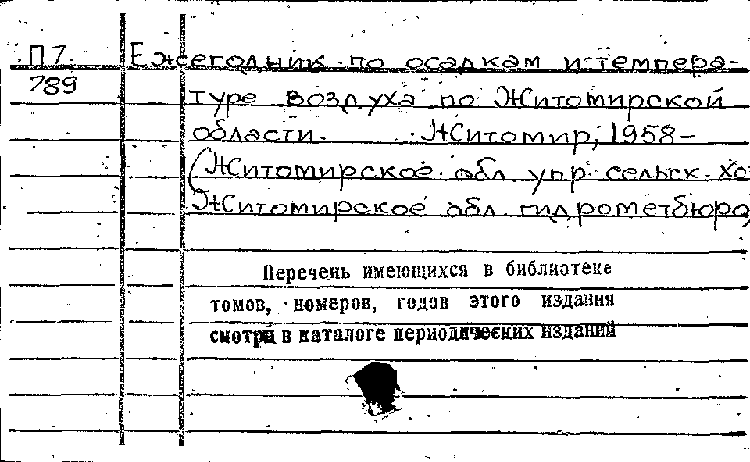 П7 Ежегодник по осадкам и темпера-
789
туре воздуха по Житомирской
области. Житомир, 1958-
(Житомирское обл. упр. сельск. хо
Житомирское обл. гидрометбюро
Перечень имеющихся в библиотеке
томов, номеров, годов этого издания
смотри в каталоге периодических изданий